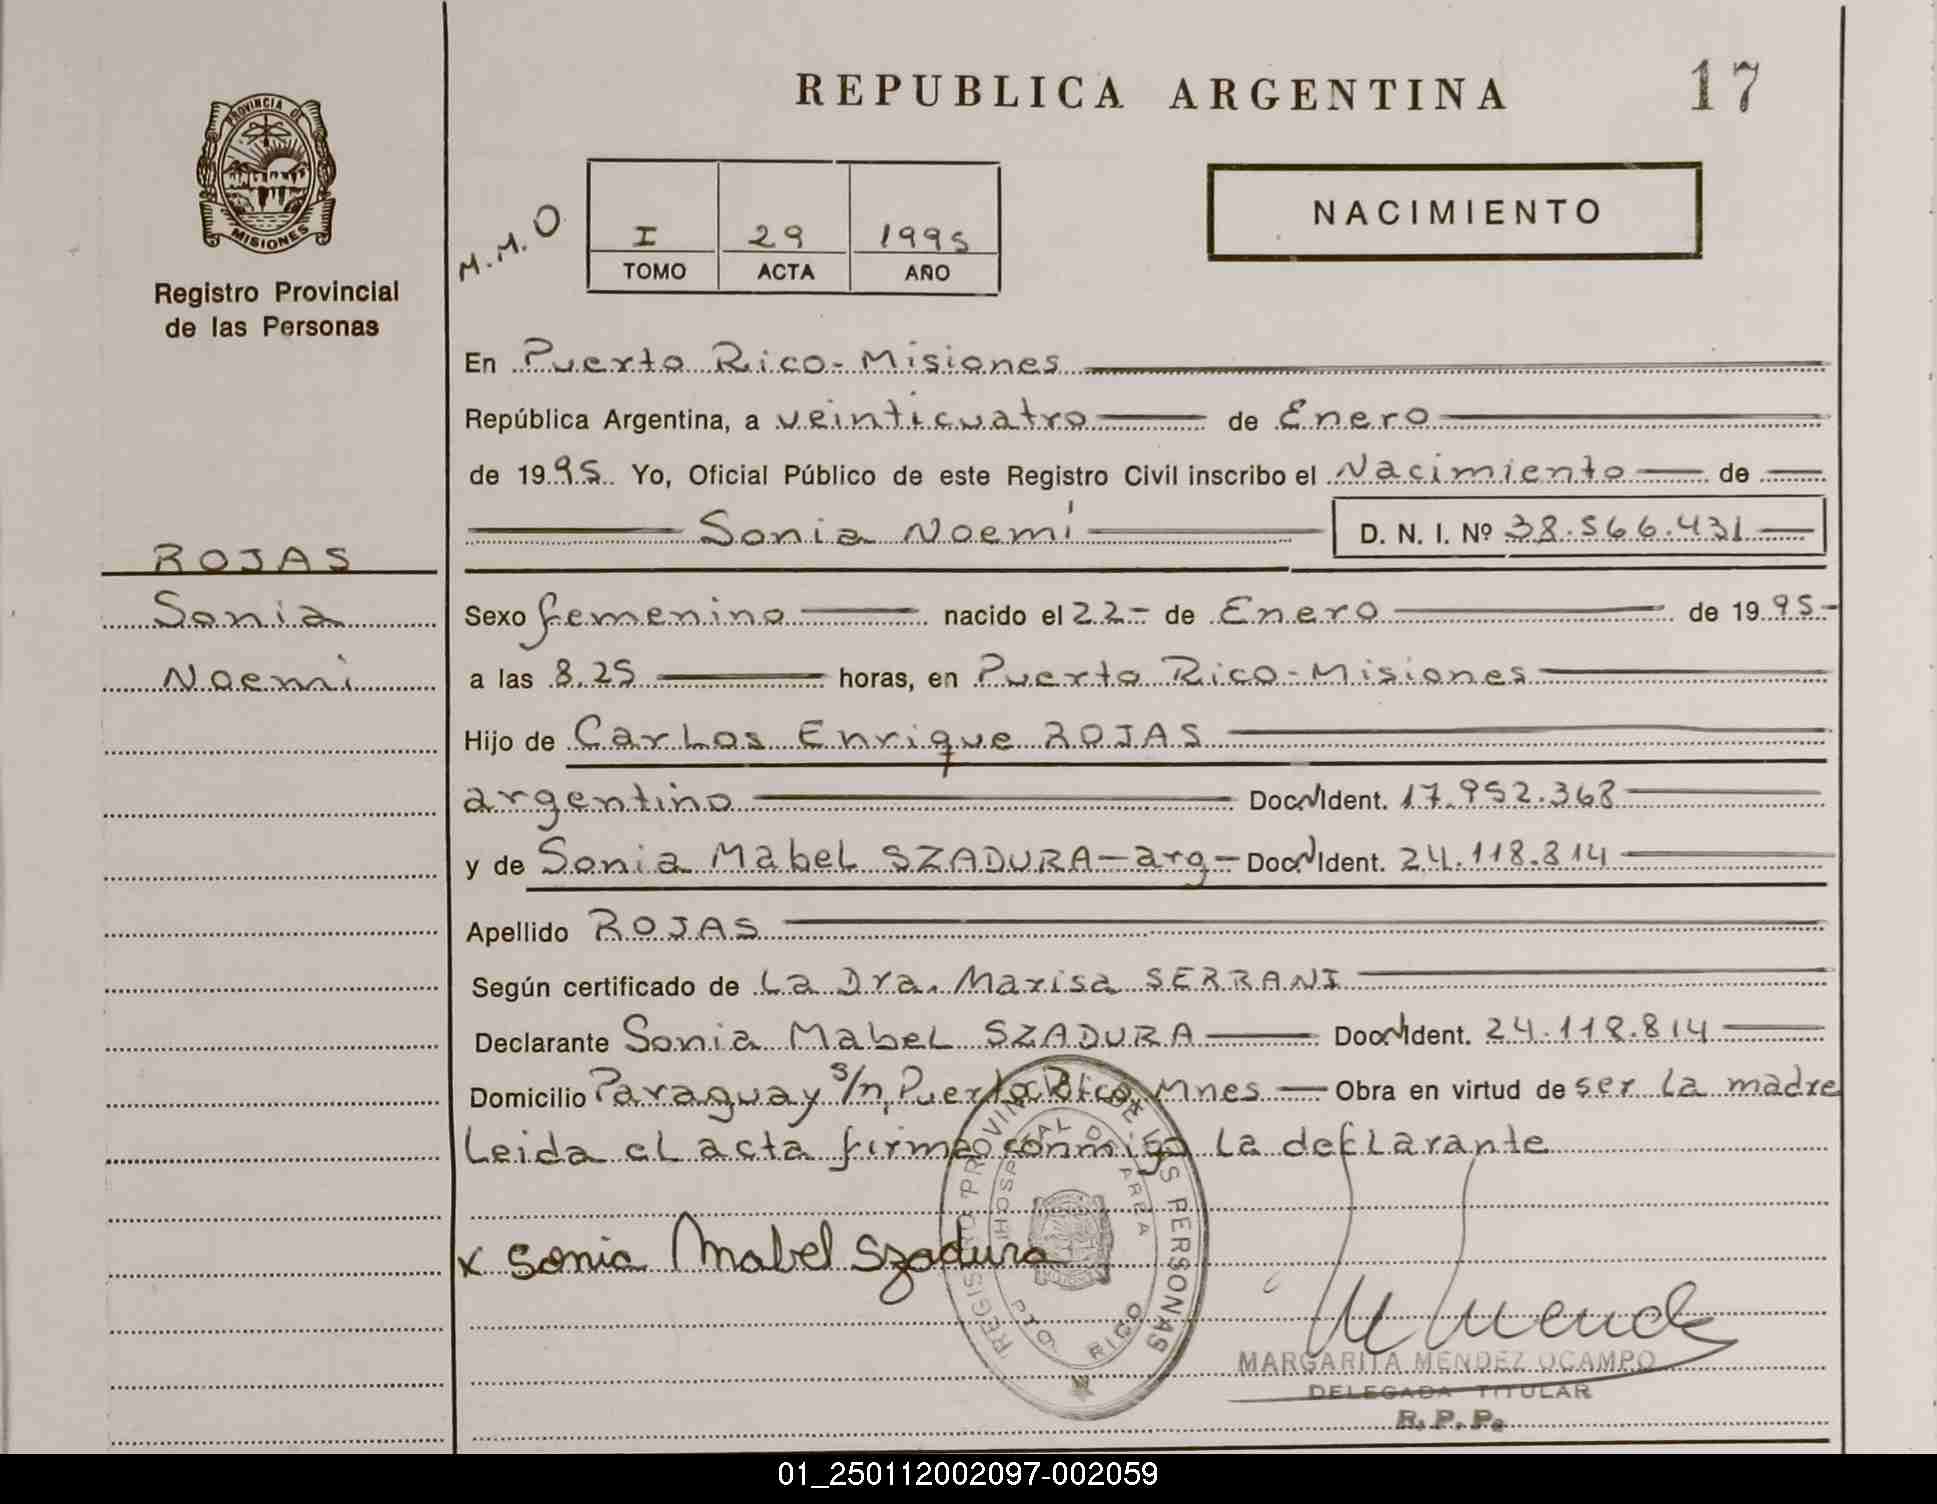 REPUBLICA ARGENTINA
17
PROVINCIA DE
MISIONES
Registro Provincial
de las Personas
M.M.O
I 29 1995
TOMO ACTA AÑO
NACIMIENTO
En Puerto Rico-Misiones
República Argentina, a veinticuatro de Enero
de 1995. Yo, Oficial Público de este Registro Civil inscribo el Nacimiento de
Sonia Noemí D. N. I. Nº 38.566.431
ROJAS
Sonia
Noemi
Sexo femenino nacido el 22- de Enero de 1995-
a las 8.25 horas, en Puerto Rico-Misiones
Hijo de Carlos Enrique ROJAS
argentino Doc. Ident. 17.952.368
y de Sonia Mabel SZADURA-arg- Doc. Ident. 24.118.814
Apellido ROJAS
Según certificado de La Dra. Marisa SERRANI
Declarante Sonia Mabel SZADURA Doc. Ident. 24.118.814
Domicilio Paraguay s/n, Puerto Rico, Mnes Obra en virtud de ser la madre
Leida el acta firma conmigo la declarante
x Sonia Mabel Szadura
REGISTRO PROVINCIAL DE LAS PERSONAS
HOSPITAL DE AREA
PTO. RICO
M Mende
MARGARITA MENDEZ OCAMPO
DELEGADA TITULAR
R. P. P.
01_250112002097-002059